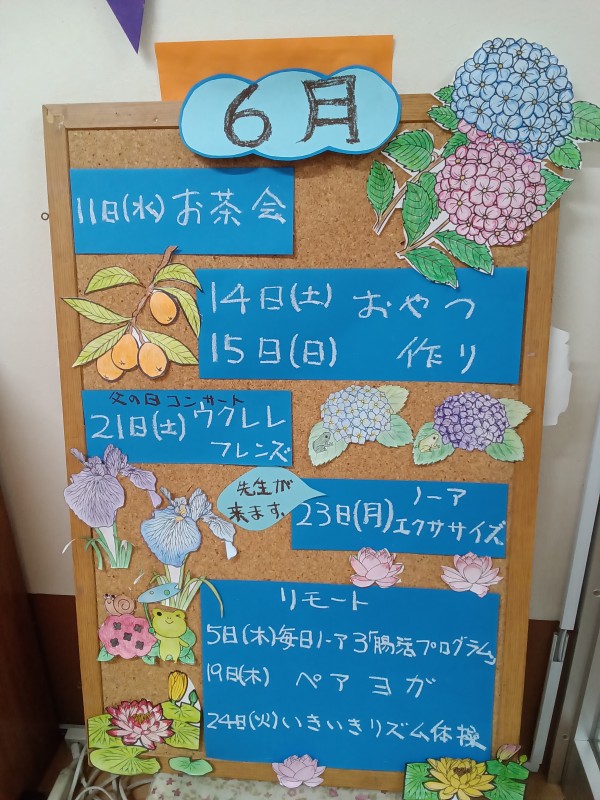 6月
11日(水)お茶会
14日(土) おやつ
15日(日) 作り
父の日コンサート
21日(土)ウクレレ
フレンズ
先生が
来ます。
ノーア
23日(月)エクササイズ
リモート
5日(木)毎日ノーア3「腸活プログラム」
19日(木) ペアヨガ
24日(火)いきいきリズム体操